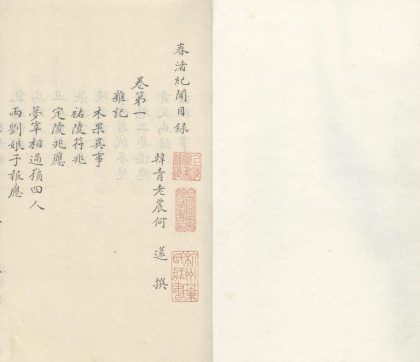 春渚紀聞目錄
韓青老農何 薳 撰
卷第一
雜記
木果異事
祐陵符兆
定陵兆應
夢宰相過嶺四人
兩劉娘子報應